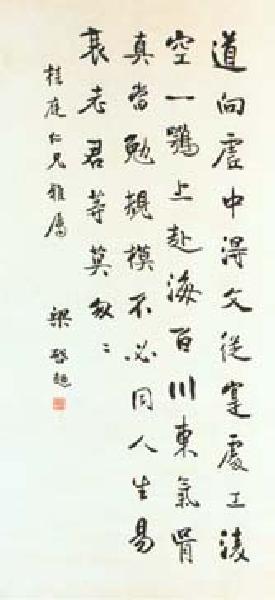 道向虛中得文從寔處工凌
空一鶚上赴海百川東氣骨
真當勉規模不必同人生易
衰老君等莫匆〻
桂庭仁兄雅屬
梁啓超